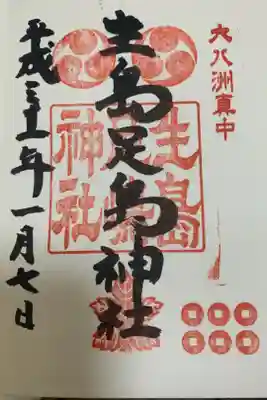 大八洲真中
生島足島神社
生島
神社
平成三十一年一月七日